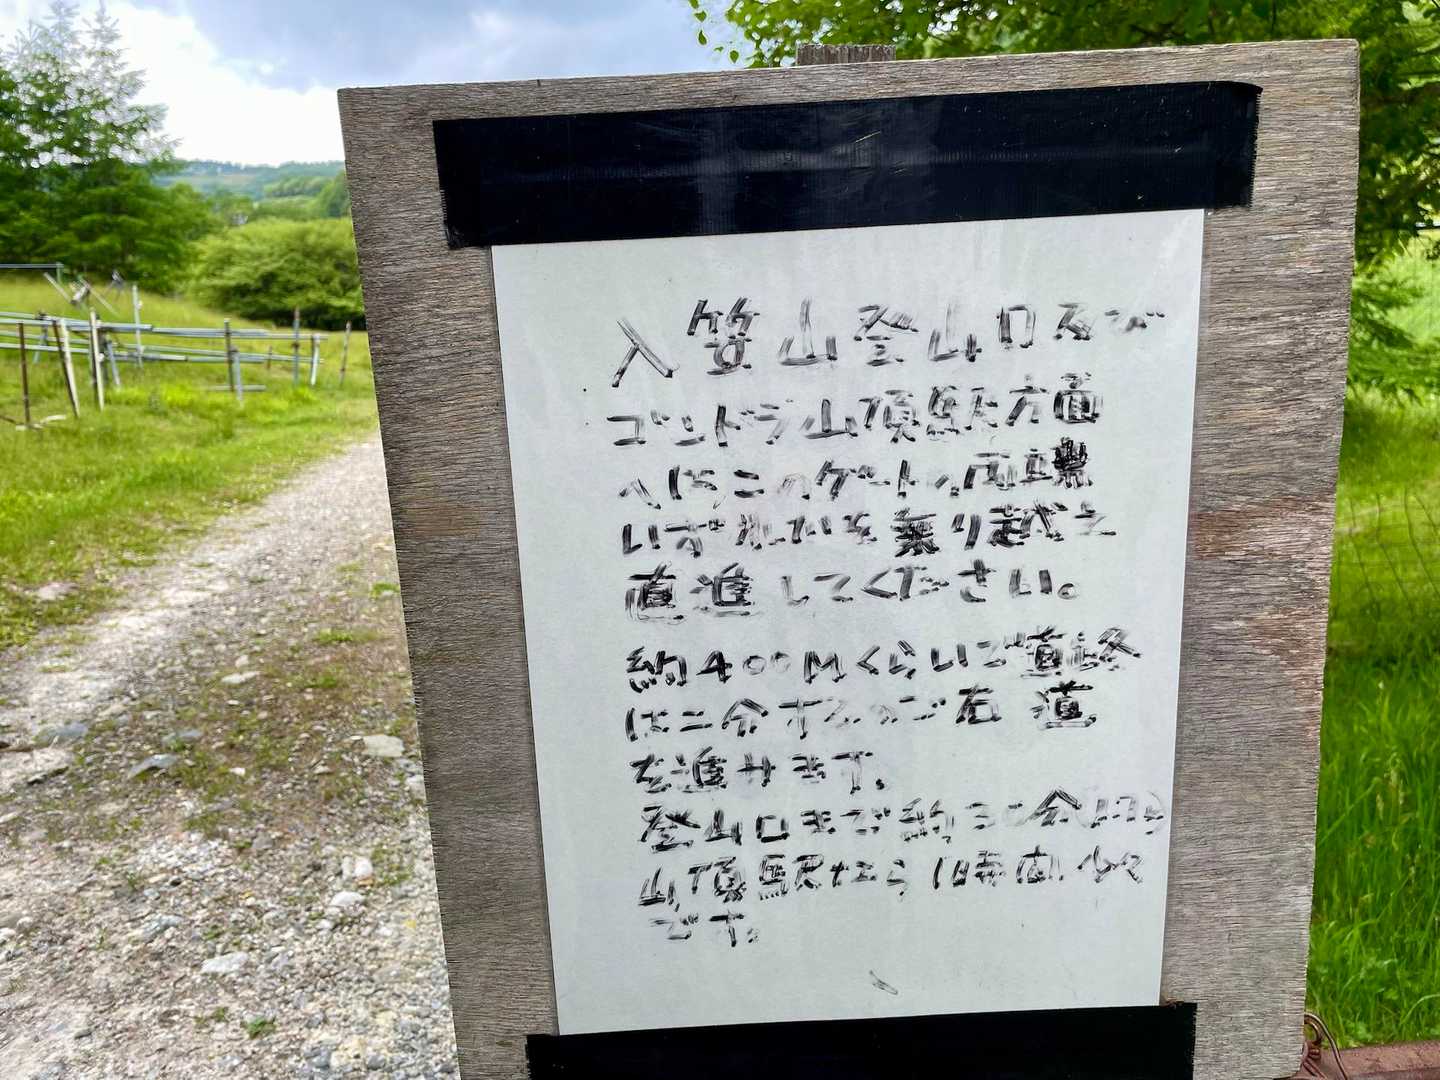 入笠山登山口及び
ゴンドラ山頂駅方面
へは、このゲートの両端
いずれかを乗り越え
直進してください。
約400Mくらいで道路
は二分するので右道
を進みます。
登山口まで約30分
山頂駅なら1時間少々
です。